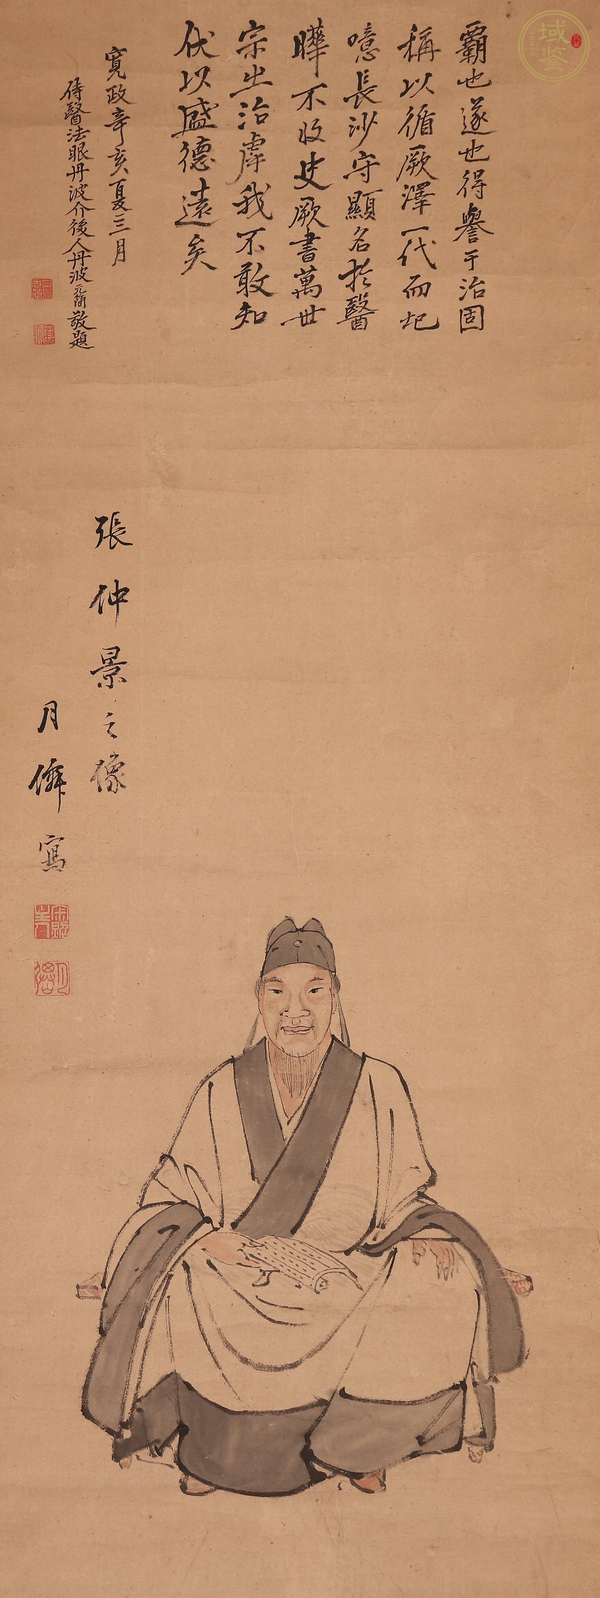 霸也遂也得譽于治固
稱以循厥澤一代而圮
噫長沙守顯名於醫
曄不收史厥書萬世
宗之治虖我不敢知
伏以盛德遠矣
寬政辛亥夏三月
侍醫法眼丹波介後人丹波元簡敬題
張仲景之像
月僊寫
域鉴